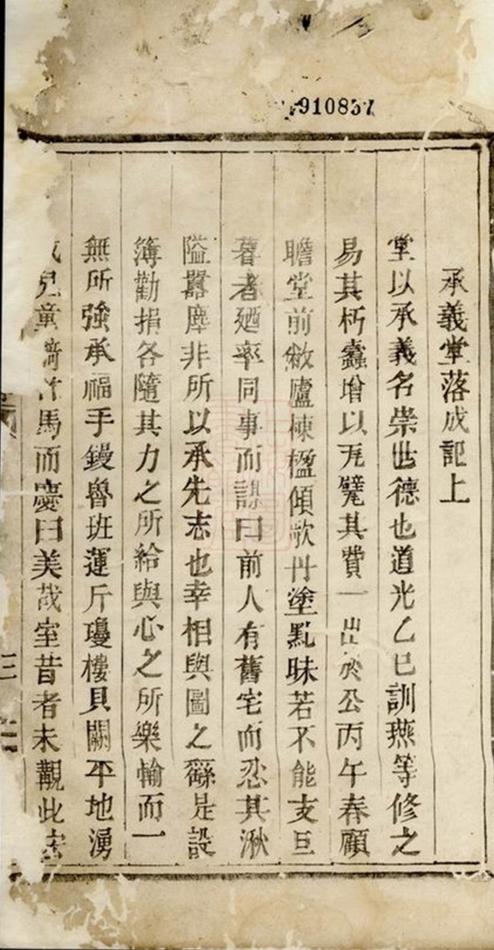 910837
承義堂落成記上
堂以承義名崇世德也道光乙巳訓燕等修之
易其朽蠹增以瓦甓其費一出於公丙午春顧
瞻堂前敝廬棟楹傾欹丹塗黯昧若不能支亘
暮者廼率同事而謀曰前人有舊宅而忍其湫
隘囂塵非所以承先志也幸相與圖之繇是設
簿勸捐各隨其力之所給與心之所樂輸而一
無所強承福手鏝魯班運斤瓊樓貝闕平地湧
兒童 馬而慶曰美哉室昔者未觀此
三